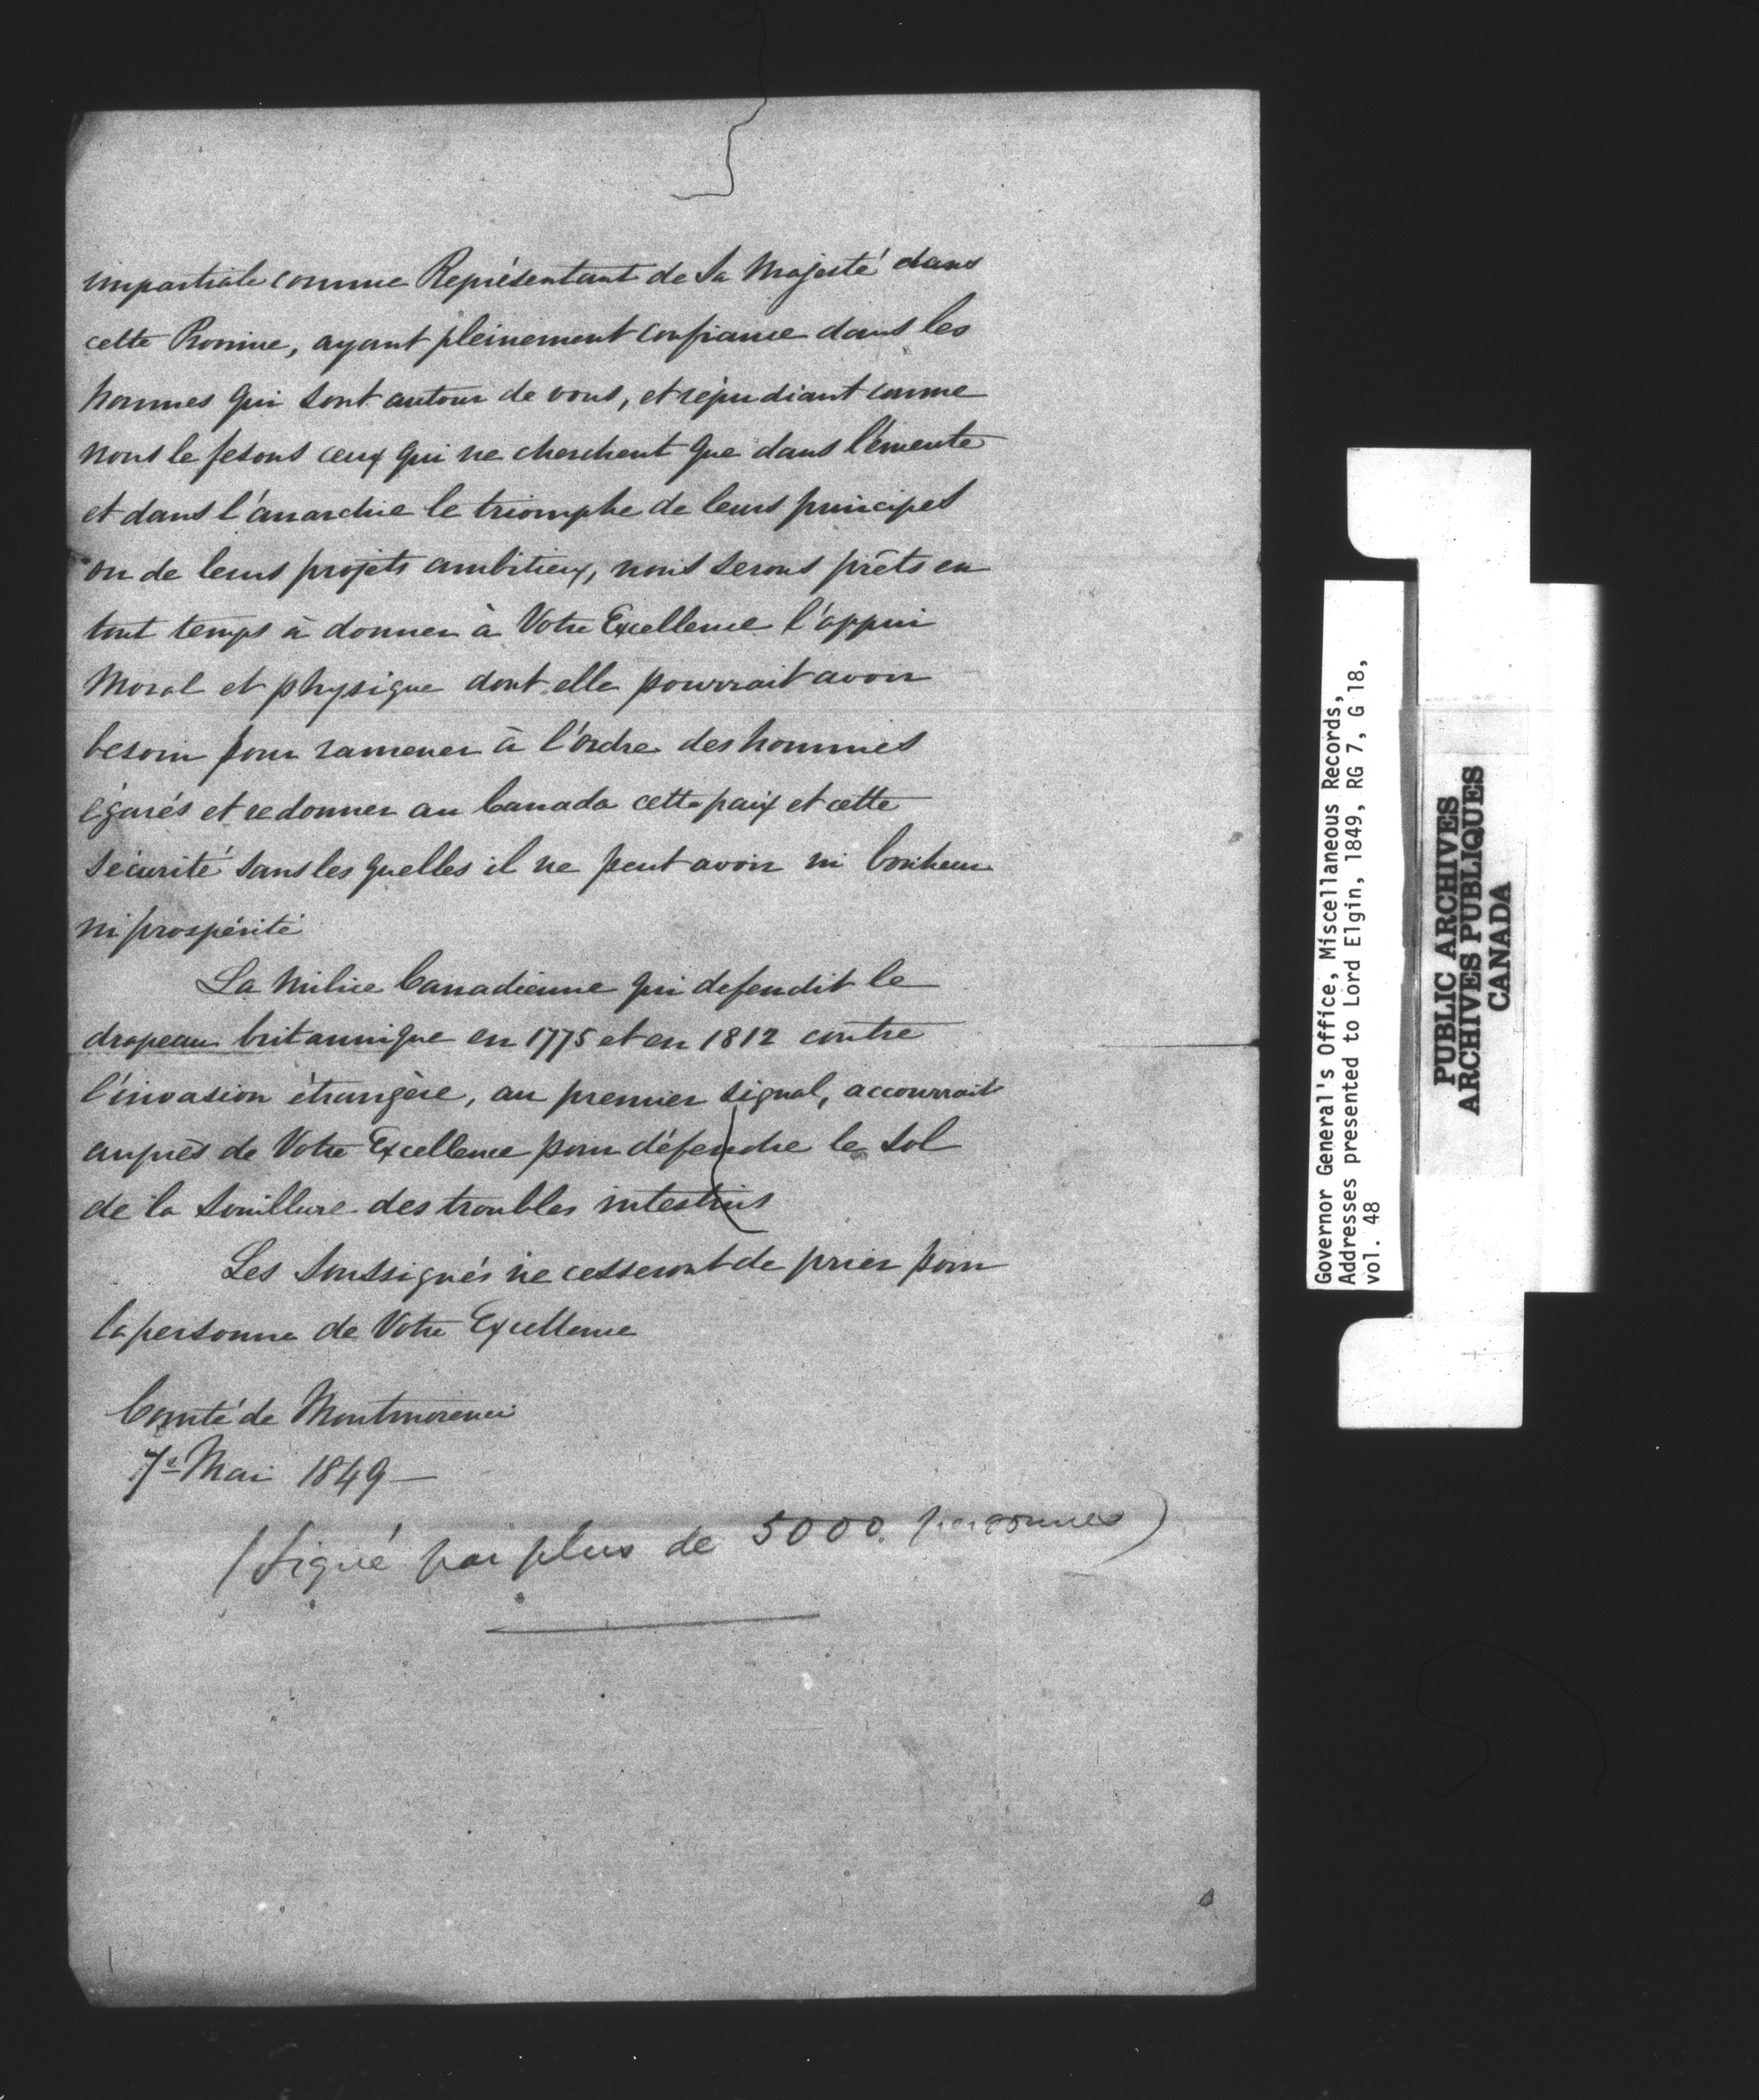 impartiale comme Représentant de Sa Majesté dans
cette Province, ayant pleinement confiance dans les
hommes qui sont autour de vous, et répudiant comme
nous le fesons ceux qui ne cherchent que dans l'émeute
et dans l'anarchie le triomphe de leurs principes
ou de leurs projets ambitieux, nous serons prêts en
tout temps à donner à Votre Excellence l'appui
Moral et physique dont elle pourrait avoir
besoin pour ramener à l'ordre des hommes
égarés et redonner au Canada cette paix et cette
sécurité sans les quelles il ne peut avoir ni bonheur
ni prospérité
La Milice Canadienne qui defendit le
drapeau britannique en 1775 et en 1812 contre
l'invasion étrangère, au premier signal, accourrait
auprès de Votre Excellence pour défendre le sol
de la souillure des troubles intestins
Les Soussignés ne cesseront de prier pour
la personne de Votre Excellence
Comté de Montmorenci
7e Mai 1849 —
(Signé par plus de 5000 personnes)
Governor General's Office, Miscellaneous Records,
Addresses presented to Lord Elgin, 1849, RG 7, G 18,
vol. 48
PUBLIC ARCHIVES
ARCHIVES PUBLIQUES
CANADA